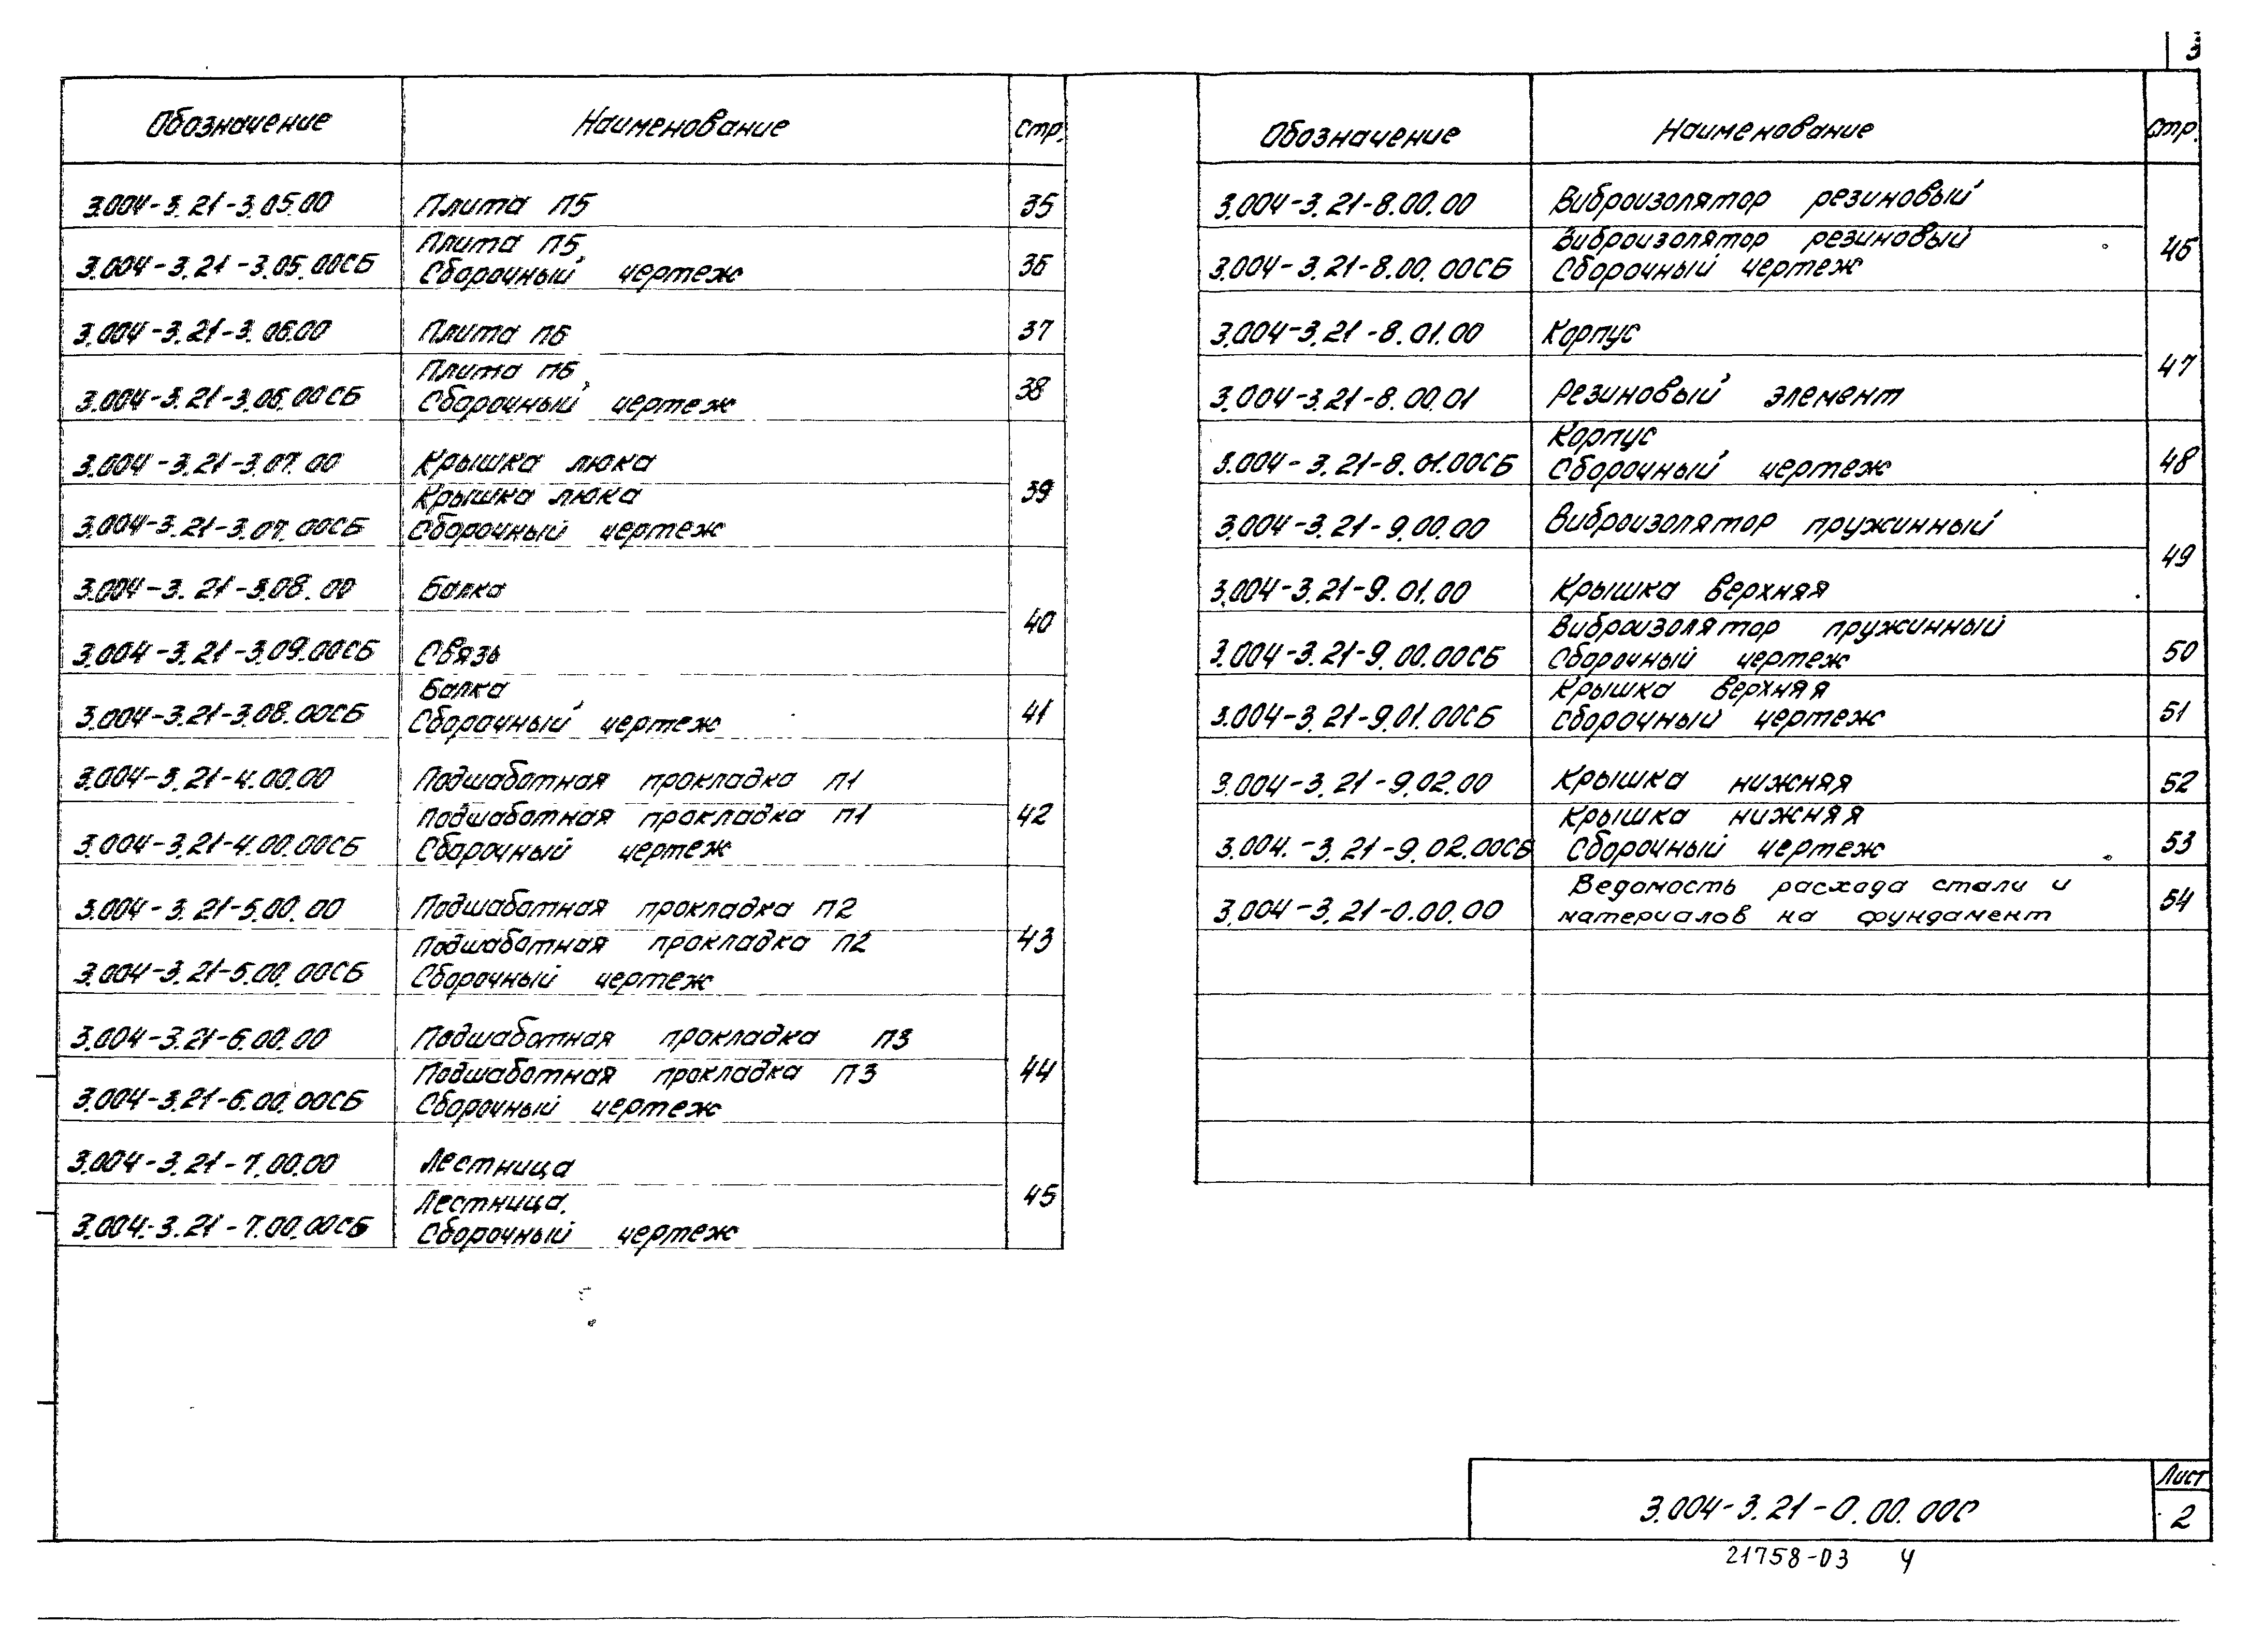 3
Обозначение Наименование Стр.
3.004-3.21-3.05.00 Плита П5 35
Плита П5
3.004-3.21-3.05.00СБ Сборочный чертеж 36
3.004-3.21-3.06.00 Плита П6 37
Плита П6
3.004-3.21-3.06.00СБ Сборочный чертеж 38
3.004-3.21-3.07.00 Крышка люка
39
Крышка люка
3.004-3.21-3.07.00СБ Сборочный чертеж
3.004-3.21-3.08.00 Балка
40
3.004-3.21-3.09.00СБ Связь
Балка
3.004-3.21-3.08.00СБ Сборочный чертеж 41
3.004-3.21-4.00.00 Подшаботная прокладка П1
42
Подшаботная прокладка П1
3.004-3.21-4.00.00СБ Сборочный чертеж
3.004-3.21-5.00.00 Подшаботная прокладка П2
43
Подшаботная прокладка П2
3.004-3.21-5.00.00СБ Сборочный чертеж
3.004-3.21-6.00.00 Подшаботная прокладка П3
44
Подшаботная прокладка П3
3.004-3.21-6.00.00СБ Сборочный чертеж
3.004-3.21-7.00.00 Лестница
45
Лестница.
3.004-3.21-7.00.00СБ Сборочный чертеж
Обозначение Наименование Стр.
3.004-3.21-8.00.00 Виброизолятор резиновый
46
Виброизолятор резиновый
3.004-3.21-8.00.00СБ Сборочный чертеж
3.004-3.21-8.01.00 Корпус
47
3.004-3.21-8.00.01 Резиновый элемент
Корпус
3.004-3.21-8.01.00СБ Сборочный чертеж 48
3.004-3.21-9.00.00 Виброизолятор пружинный
49
3.004-3.21-9.01.00 Крышка верхняя
Виброизолятор пружинный
3.004-3.21-9.00.00СБ Сборочный чертеж 50
Крышка верхняя
3.004-3.21-9.01.00СБ Сборочный чертеж 51
3.004-3.21-9.02.00 Крышка нижняя 52
Крышка нижняя
3.004.-3.21-9.02.00СБ Сборочный чертеж 53
Ведомость расхода стали и
3.004-3.21-0.00.00 материалов на фундамент 54
Лист
3.004-3.21-0.00.00С 2
21758-03 4